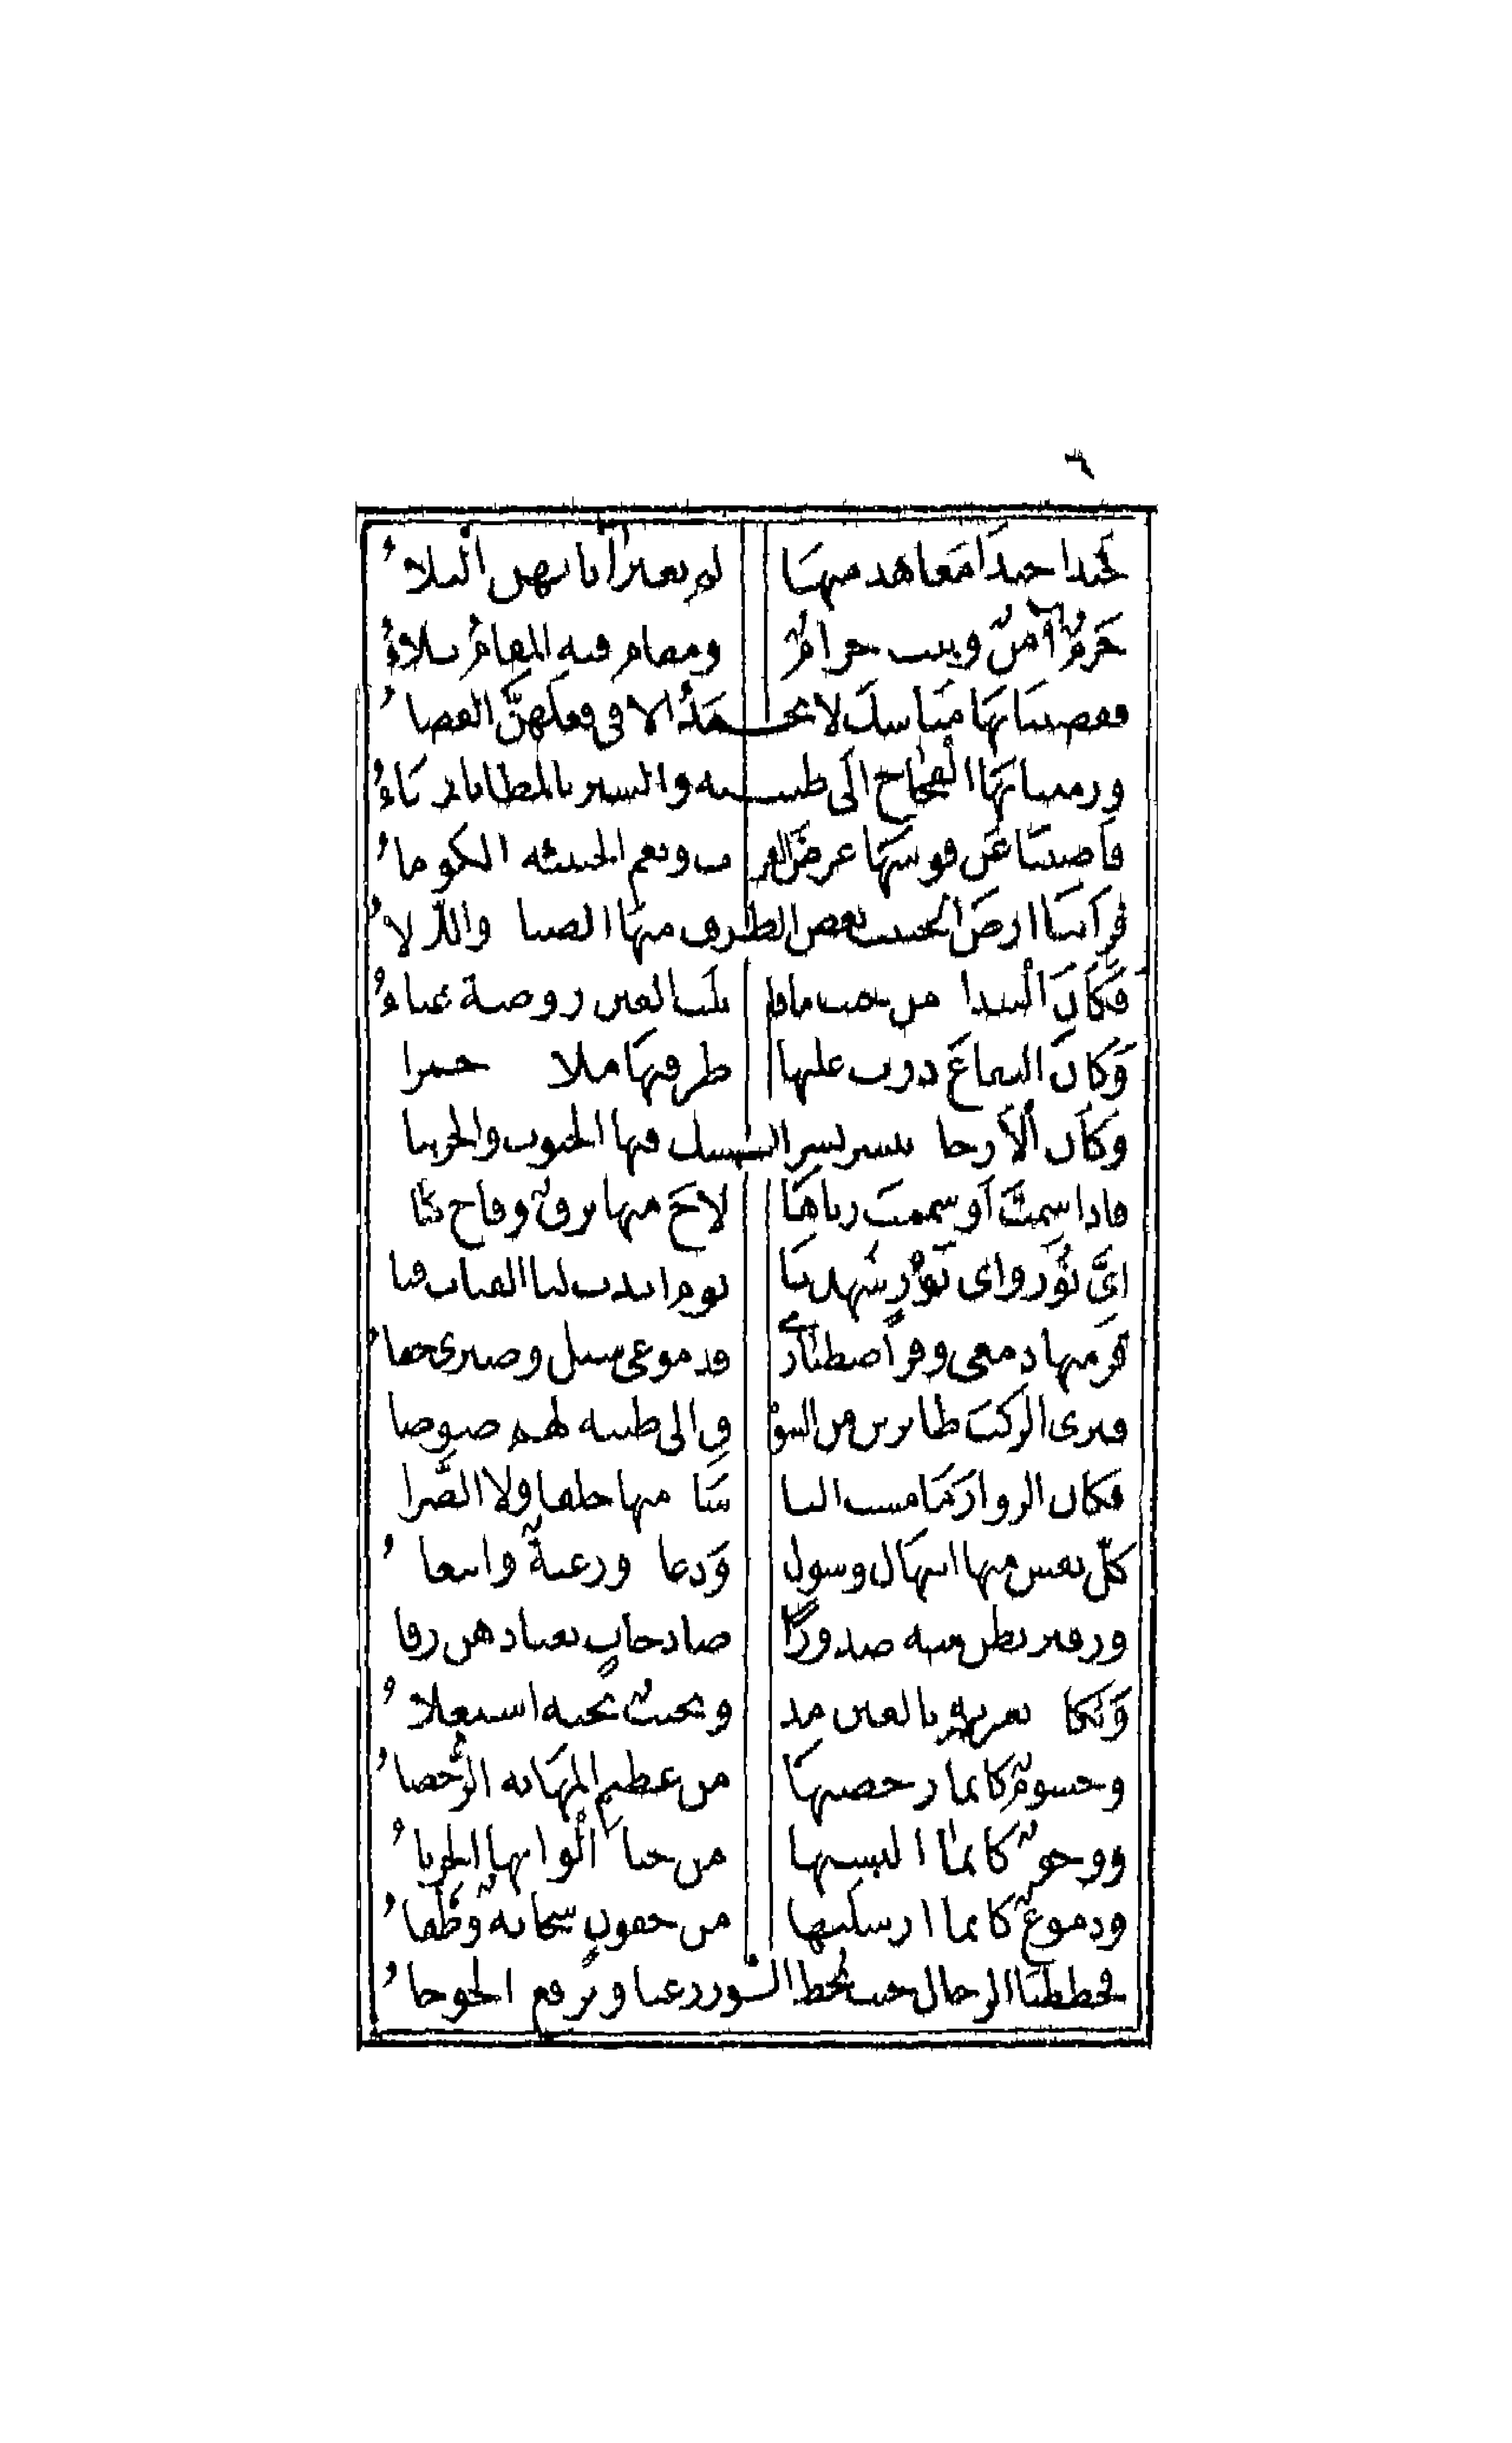 ٦
حبذا حبذا معاهد منها لم يغير آياتهن البلاء
حَرمٌ آمنٌ وبيت حرامٌ ومقام فيه المقامُ تلاءُ
فقضينا بها مناسك لا يحـمَدُ الا في فعلهنّ القضاءُ
ورمينا بها الفجاج الى طيـبه والسير بالمطايا رماءُ
فاصبنا عن قوسها غرض القر ب ونعم الخبيئه الكوماءُ
فرأينا ارض الحبيب يغض الطرف منها الضيا واللألاءُ
فكأن البيدا من حيث ما قا بلت العين روضة غناءُ
وكأن البقاع زرت عليها طرفيها ملا حمرا
وكأن الأرجا ينشر نشر المـسك فيها الجنوب والجربيا
فاذا شمت أو شممت رباها لاح منها برقٌ وفاح كبا
ايَّ نُورٍ واى نَوْرٍ شهدنا يوم ابدت لنا القباب قبا
قر منها دمعى وفر اصطبارى فدموعى سيل وصبرى جفاءُ
فترى الركب طايرين من الشو ق الى طيبه لهم ضوضا
فكان الزوار ما مست البا سا منها خلقا ولا الضّرا
كل نفس منها ابتهال وسول ودعا ورغبةٌ وابتغاءُ
وزفير تظن منه صدورًا صادحاتٍ يعتادهن زقا
وبكا يغريه بالعين مد ونحيبٌ يحثه استعلاءُ
وجسومٌ كانما رحضتها من عظيم المهابه الرحضاءُ
ووجوهٌ كانما البستها من حيا ألوانها الحرباءُ
ودموعٌ كانما ارسلتها من جفونٍ سحابةٌ وطفاءُ
فحططنا الرحال حيث يُحط الـوزر عنا وترفع الحوجاءُ